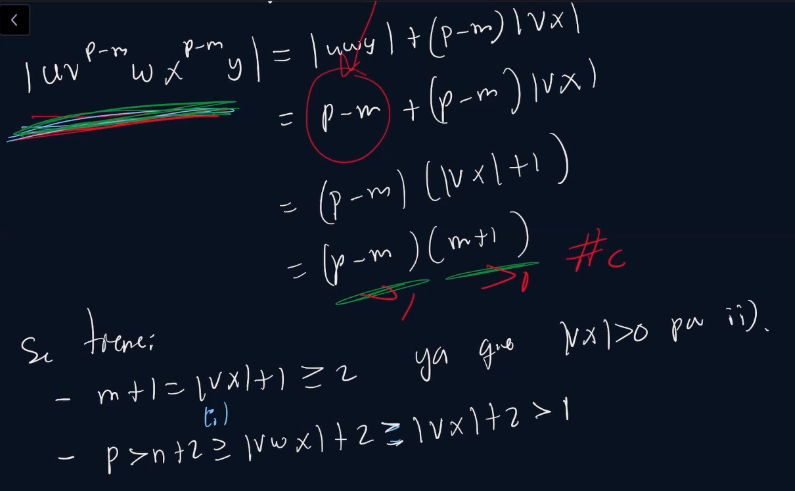 |uv^{p-m}wx^{p-m}y| = |uwy| + (p-m)|vx|
= p-m + (p-m)|vx|
= (p-m)(|vx|+1)
= (p-m)(m+1) #c
>1 >1
Se tiene:
- m+1 = |vx|+1 ≥ 2 ya que |vx|>0 por ii).
(i)
- p>n+2 ≥ |vwx|+2 ≥ |vx|+2 > 1